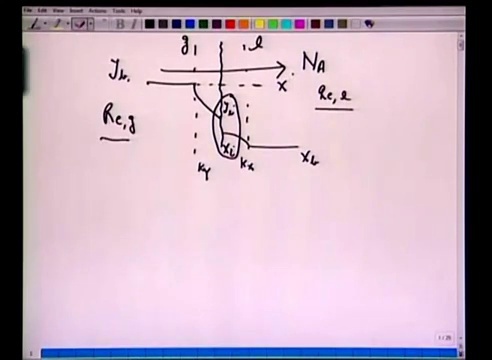 File Edit View Insert Actions Tools Help
g l
y_b N_A
x
Re,g Re,l
y_i
x_i x_b
k_y k_x
1/25